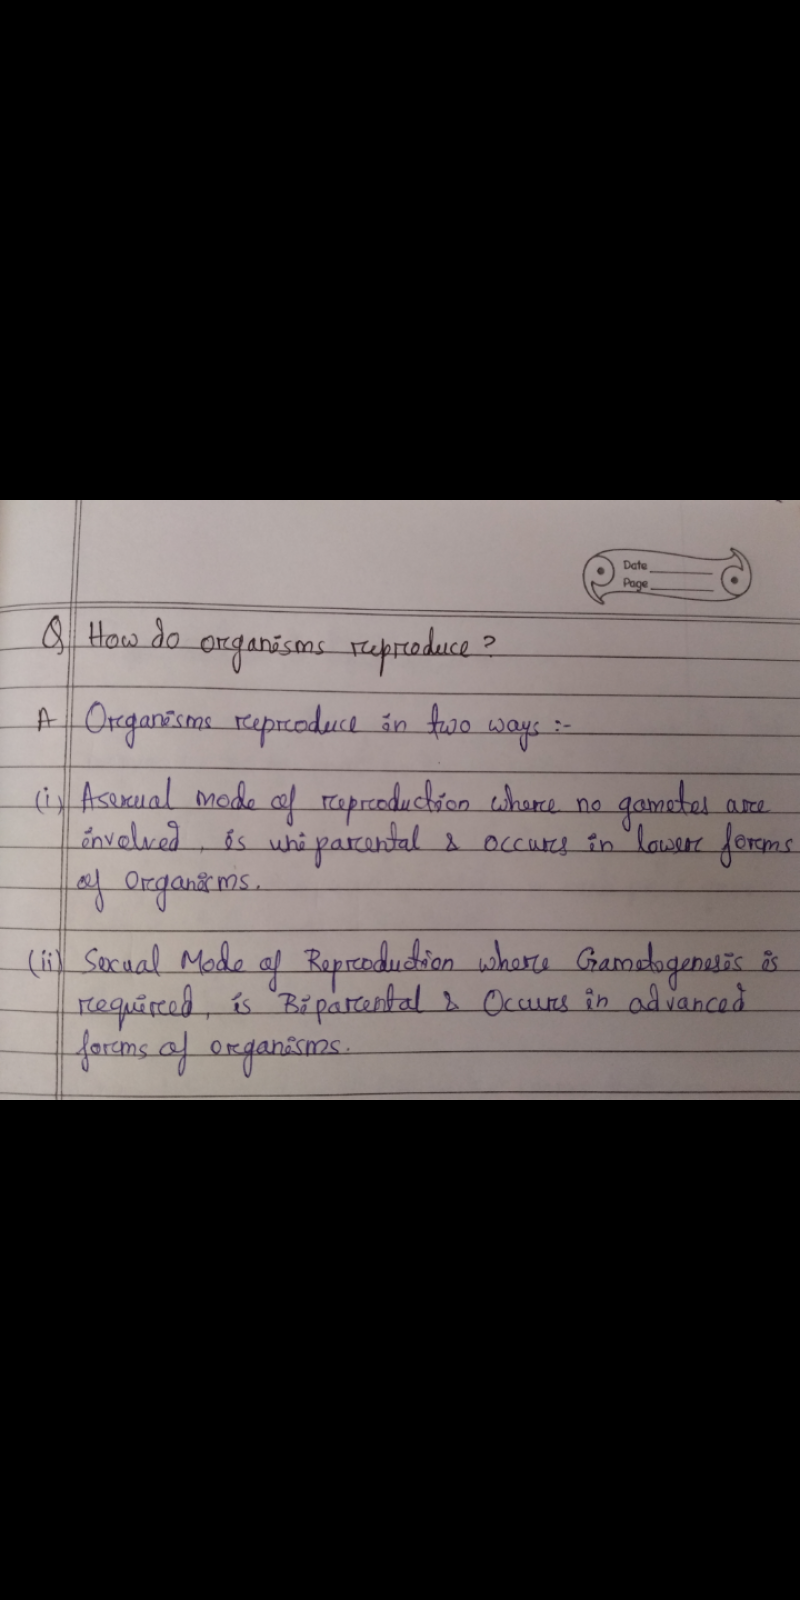 Date
Page
Q How do organisms reproduce?
A Organisms reproduce in two ways :-
(i) Asexual mode of reproduction where no gametes are
involved, is uniparental & occurs in lower forms
of organisms.
(ii) Sexual Mode of Reproduction where Gametogenesis is
required, is Biparental & Occurs in advanced
forms of organisms.